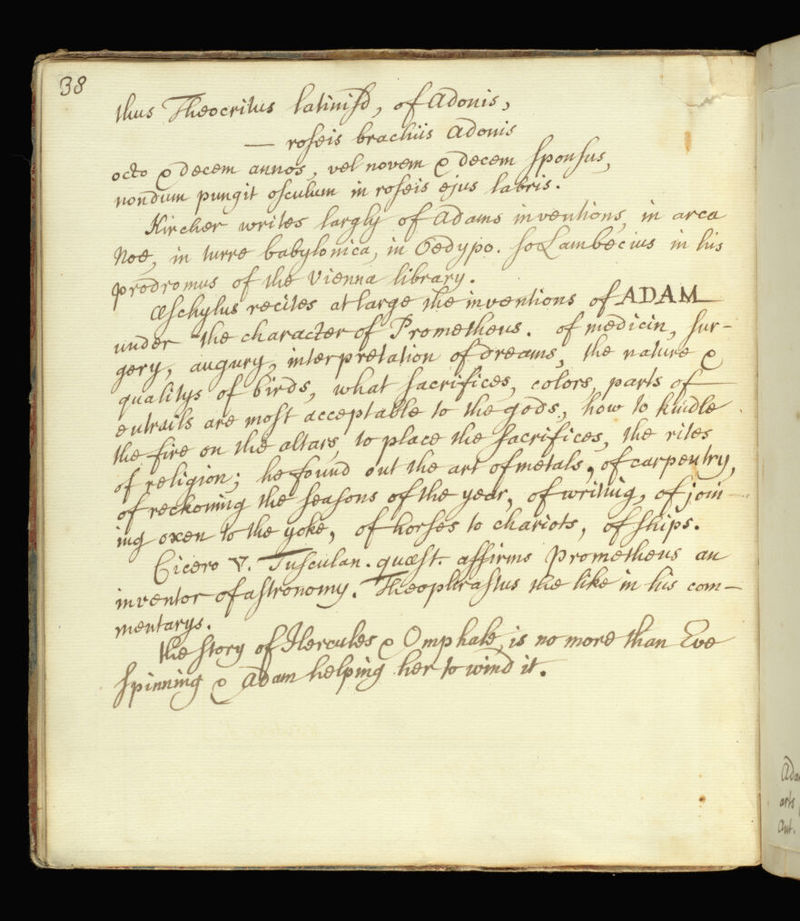 38
thus Theocritus latinisd, of Adonis,
— roseis brachiis Adonis
octo & decem annos, vel novem & decem sponsus,
nondum pungit osculum in roseis ejus labris.
Kircher writes largly of Adams inventions, in arca
Noe, in turre babylonica, in Oedypo. so Lambecius in his
prodromus of the Vienna library.
Æschylus recites at large the inventions of ADAM
under the character of Prometheus. of medicin, sur-
gery, augury, interpretation of dreams, the nature &
qualitys of birds, what sacrifices, colors, parts of
entrails are most acceptable to the gods, how to kindle
the fire on the altars, to place the sacrifices, the rites
of religion; he found out the art of metals, of carpentry,
of reckoning the seasons of the year, of writing, of join-
ing oxen to the yoke, of horses to chariots, of ships.
Cicero V. Tusculan. quæst. affirms Prometheus an
inventor of astronomy. Theophrastus the like in his com-
mentarys.
the story of Hercules & Omphale, is no more than Eve
spinning & Adam helping her to wind it.
Ada
arts
Ant.